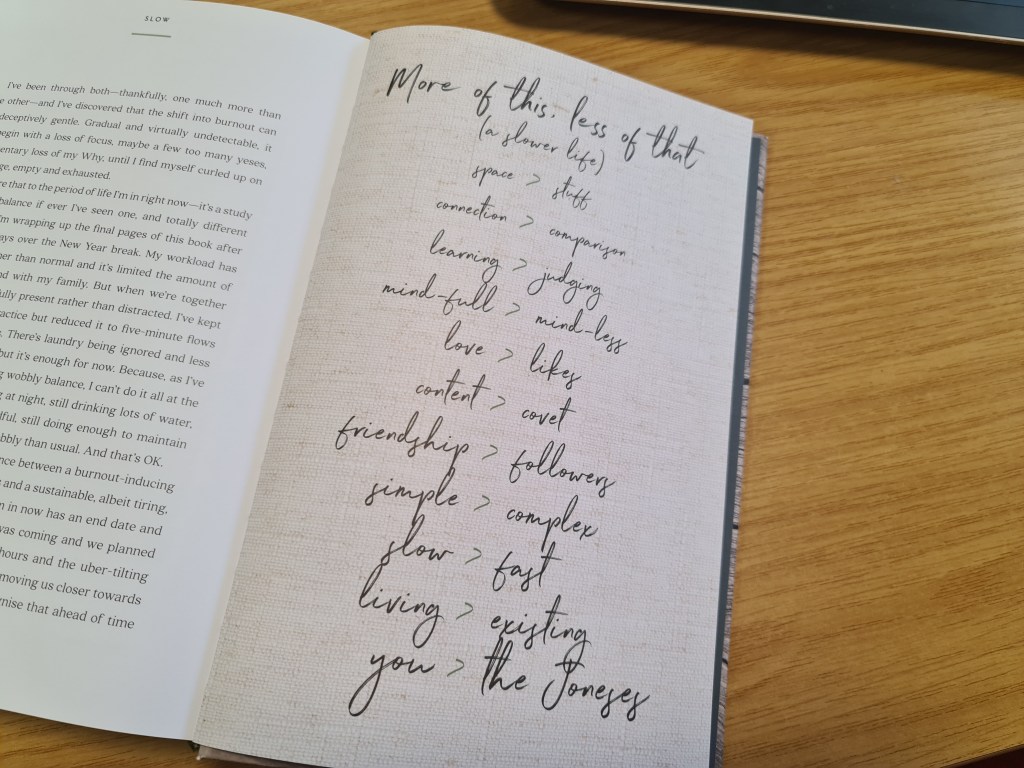 SLOW
I've been through both—thankfully, one much more than
other—and I've discovered that the shift into burnout can
deceptively gentle. Gradual and virtually undetectable, it
begin with a loss of focus, maybe a few too many yeses,
loss of my Why, until I find myself curled up on
empty and exhausted.
that to the period of life I'm in right now—it's a study
balance if ever I've seen one, and totally different
I'm wrapping up the final pages of this book after
over the New Year break. My workload has
than normal and it's limited the amount of
with my family. But when we're together
present rather than distracted. I've kept
but reduced it to five-minute flows
There's laundry being ignored and less
but it's enough for now. Because, as I've
wobbly balance, I can't do it all at the
at night, still drinking lots of water,
still doing enough to maintain
than usual. And that's OK.
between a burnout-inducing
and a sustainable, albeit tiring,
in now has an end date and
was coming and we planned
hours and the uber-tilting
moving us closer towards
that ahead of time
More of this, less of that
(a slower life)
space > stuff
connection > comparison
learning > judging
mind-full > mind-less
love > likes
content > covet
friendship > followers
simple > complex
slow > fast
living > existing
you > the Joneses